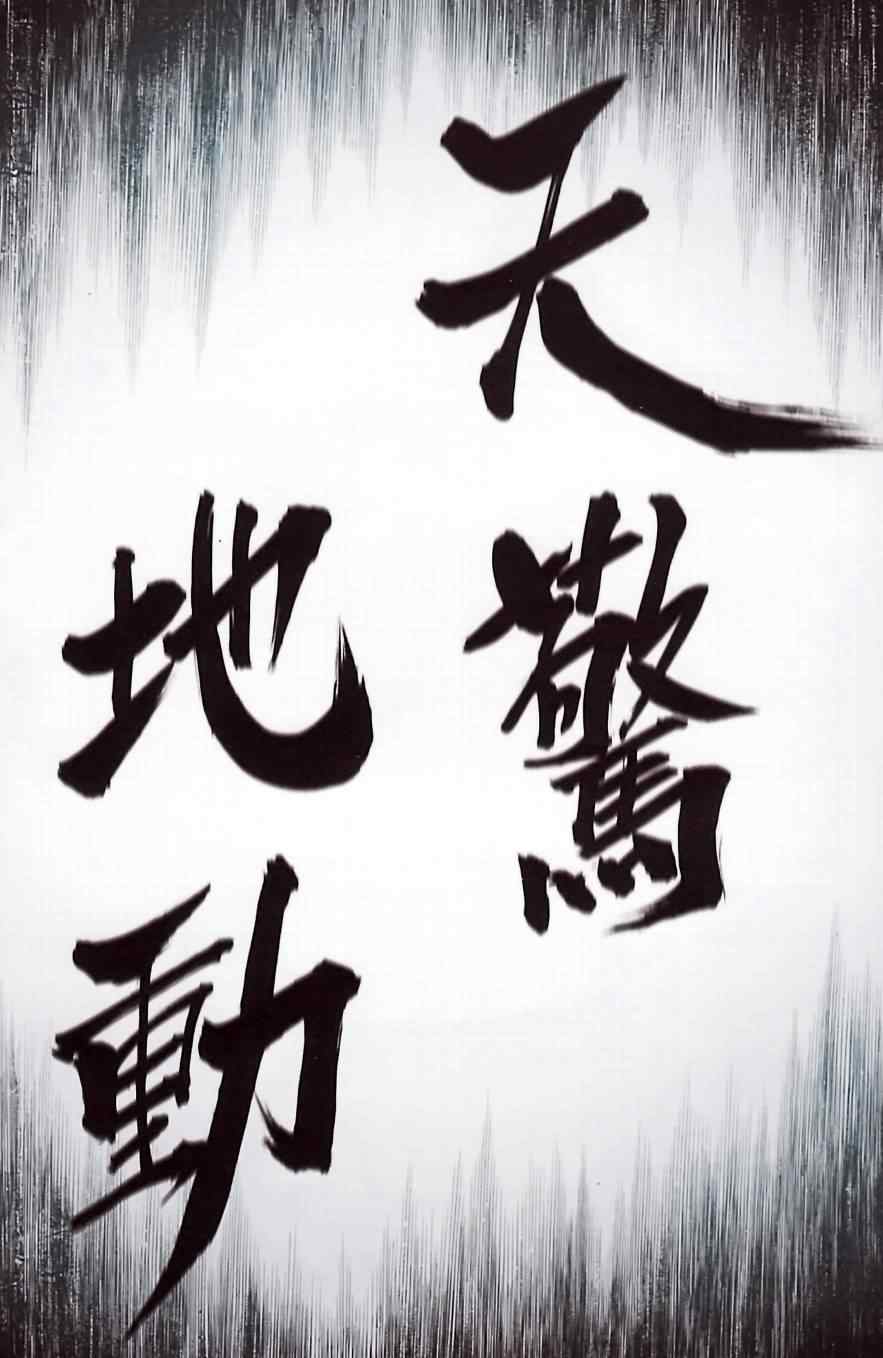 天驚
地動